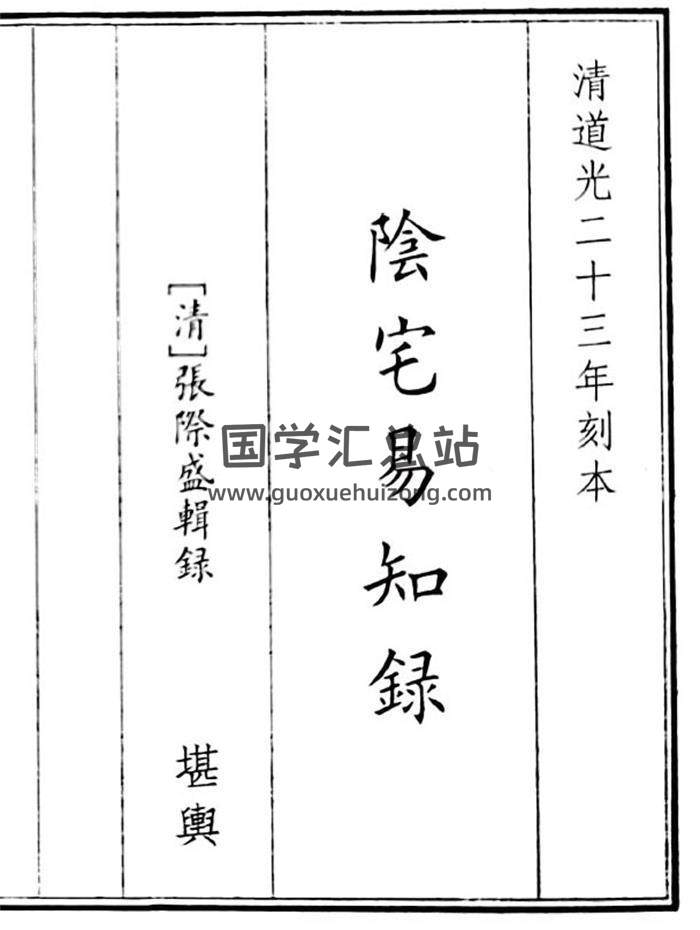 清道光二十三年刻本
陰宅易知録
[清]張際盛輯録
堪輿
国学汇总站
www.guoxuehuizong.com